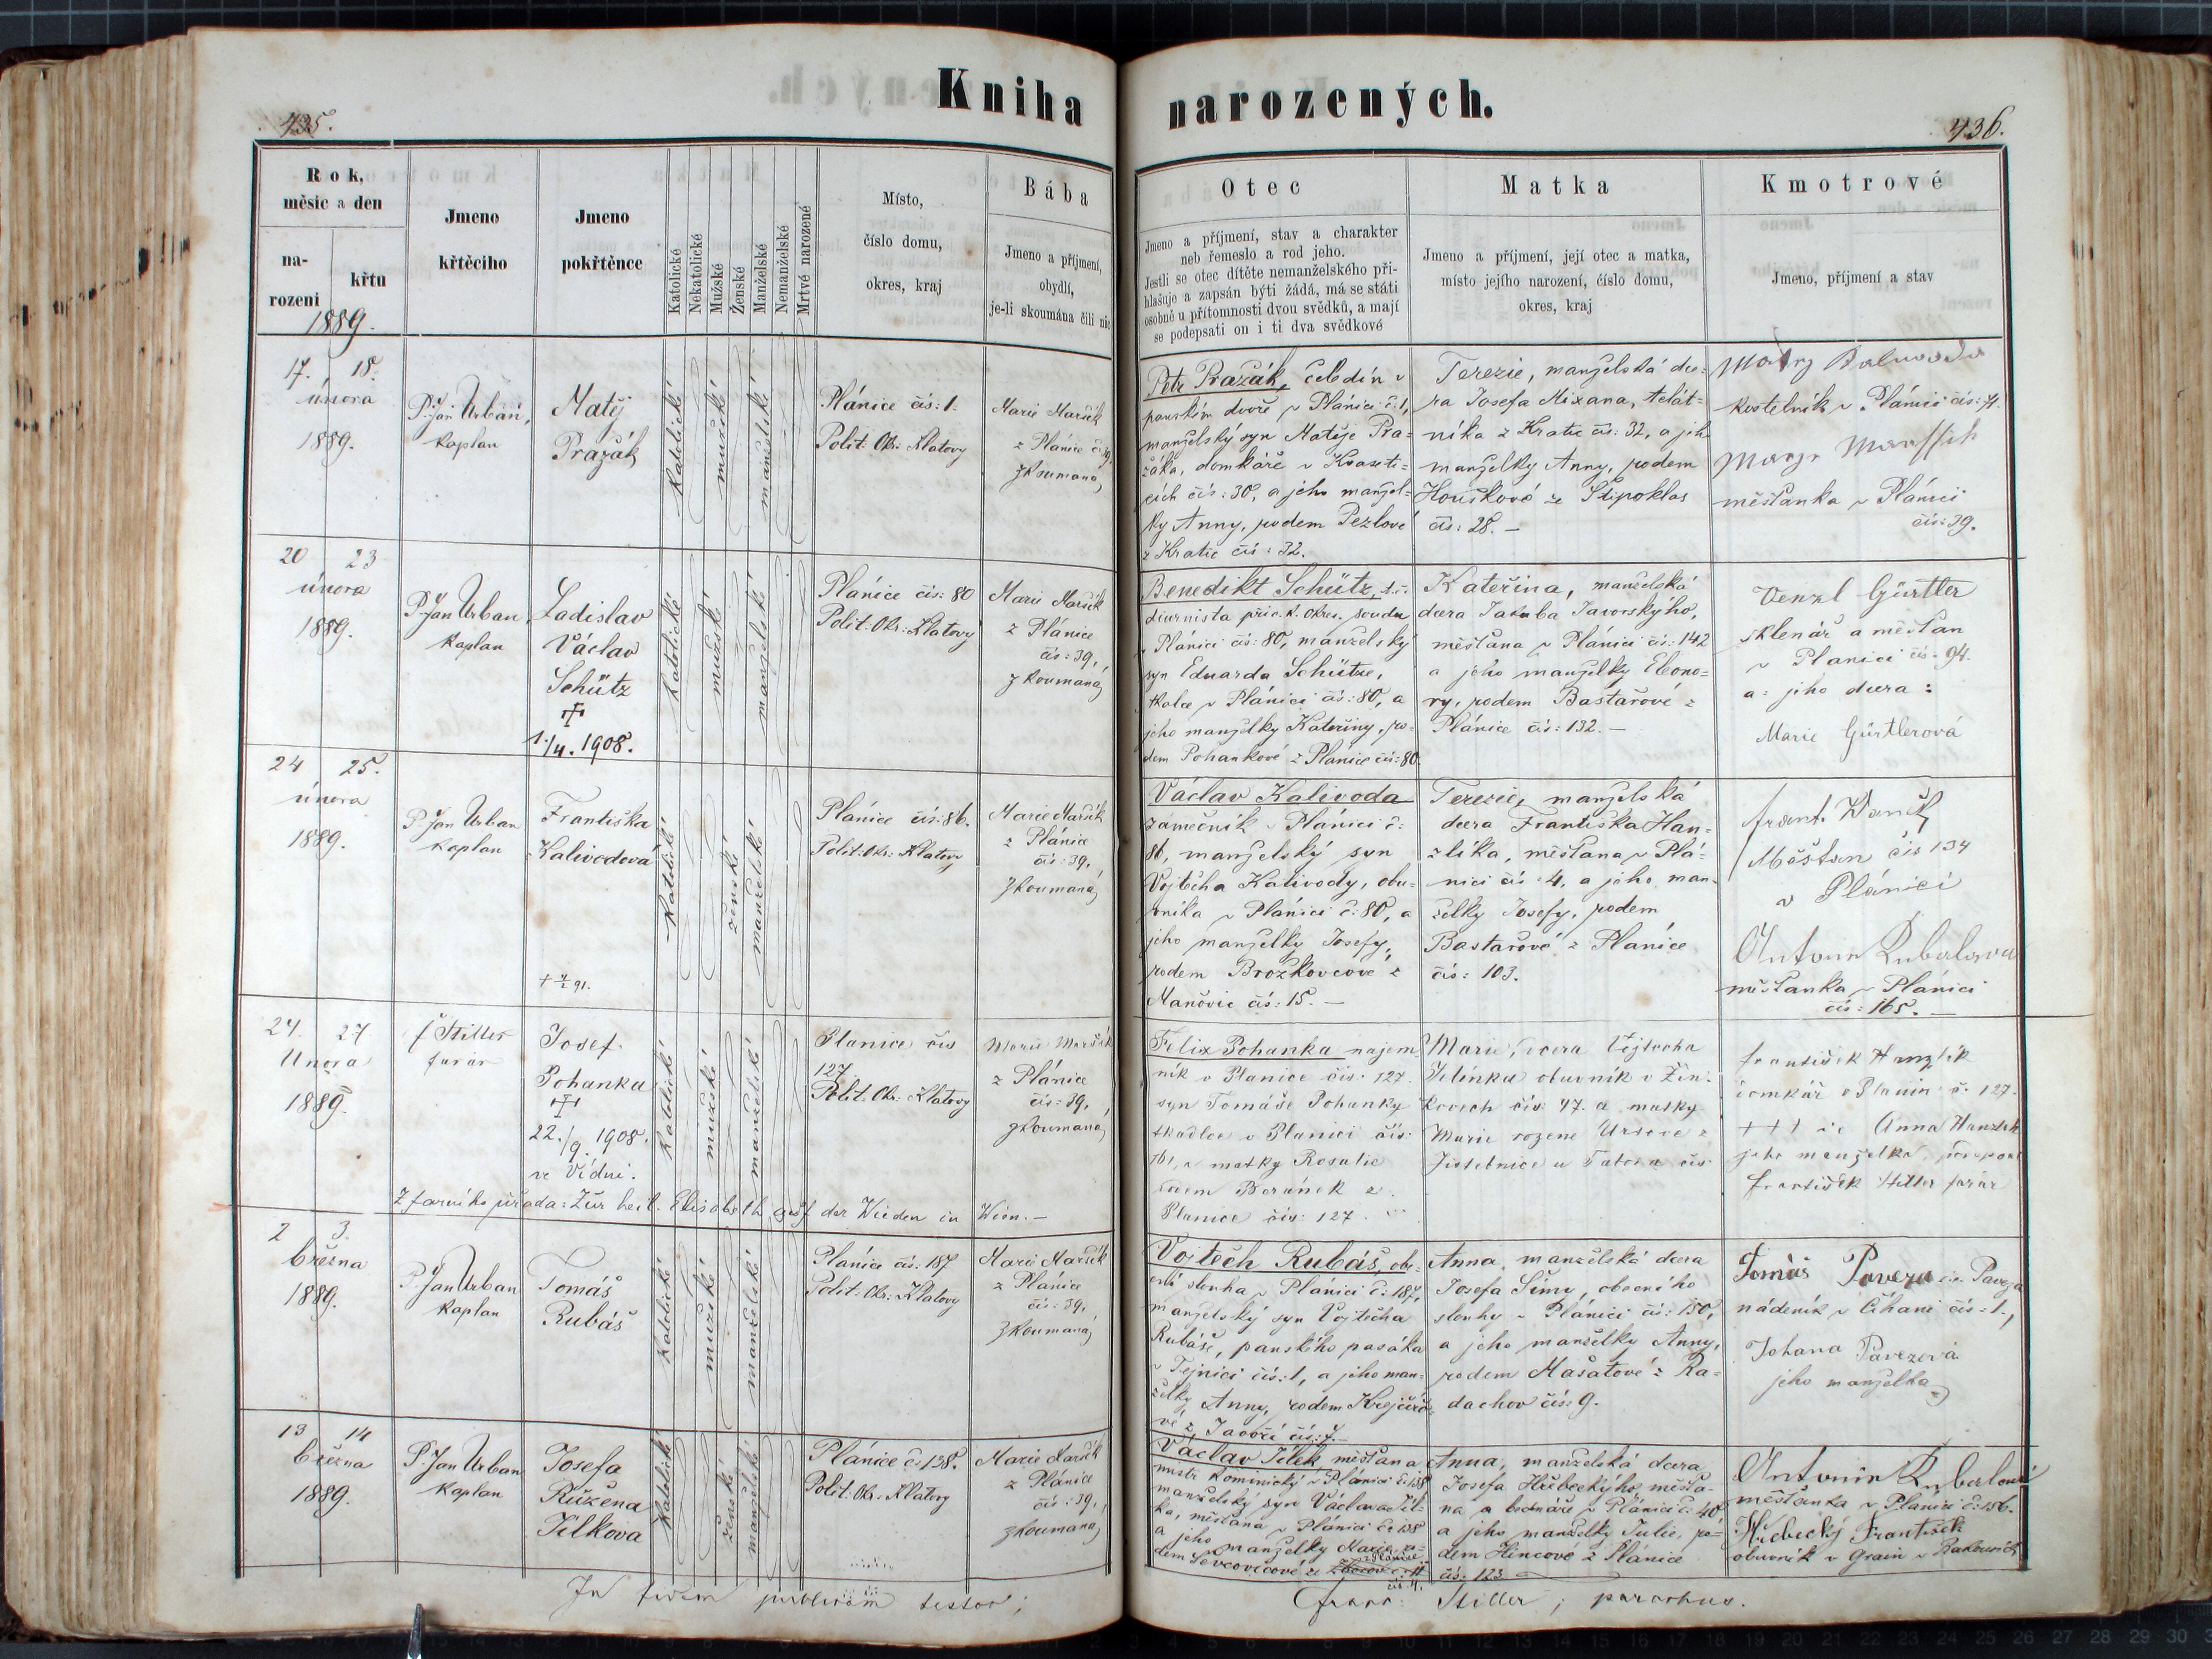 Kniha narozených.
435.
436.
Rok,
měsíc a den
na-
rozeni
křtu
1889.
Jmeno
křtěciho
Jmeno
pokřtěnce
Katolické
Nekatolické
Mužské
Ženské
Manželské
Nemanželské
Mrtvé narozené
Místo,
číslo domu,
okres, kraj
Bába
Jmeno a příjmení,
obydlí,
je-li skoumána čili nic
Otec
Jmeno a příjmení, stav a charakter
neb řemeslo a rod jeho.
Jestli se otec dítěte nemanželského při-
hlašuje a zapsán býti žádá, má se státi
osobně u přítomnosti dvou svědků, a mají
se podepsati on i ti dva svědkové
Matka
Jmeno a příjmení, její otec a matka,
místo jejího narození, číslo domu,
okres, kraj
Kmotrové
Jmeno, příjmení a stav
17. 18.
února
1889.
P. Jan Urban,
kaplan
Matěj
Pražák
katolické
mužské
manželské
Plánice čís: 1.
Polit. Okr. Klatovy
Marie Maršík
z Plánice č. 39,
zkoumaná
Petr Pražák, čeledín v
panském dvoře v Plánici č: 1,
manželský syn Matěje Pra-
žáka, domkáře v Kvaseti-
cích čís: 30, a jeho manžel-
ky Anny, rodem Pezlové
z Kratic čís: 32.
Terezie, manželská dce-
ra Josefa Mixana, telát-
níka z Kratic čís: 32, a jeho
manželky Anny, rodem
Houškové ze Štipoklas
čís: 28. —
kostelník v Plánici čís: 71.
měšťanka v Plánici
čís: 39.
20 23
února
1889.
P. Jan Urban
kaplan
Ladislav
Václav
Schütz
†
1./4. 1908.
katolické
mužské
manželské
Plánice čís: 80
Polit: Okr: Klatovy
Marie Maršík
z Plánice
čís: 39,
zkoumaná
Benedikt Schütz, t.č.
diurnista při c. k. okres. soudu
v Plánici čís: 80, manželský
syn Eduarda Schütze,
tkalce v Plánici čís: 80, a
jeho manželky Kateřiny, ro-
dem Pohankové z Plánice čís: 80.
Kateřina, manželská
dcera Jakuba Javorského,
měšťana v Plánici čís: 142
a jeho manželky Eleono-
ry, rodem Bastařové z
Plánice čís: 132. —
Venzl Gürtler
sklenář a měšťan
v Planici čís. 94.
a: jeho dcera:
Marie Gürtlerová
24 25.
února
1889.
P. Jan Urban
kaplan
Františka
Kalivodová
katolické
ženské
manželské
Plánice čís: 86.
Polit: Okr: Klatovy
Marie Maršík
z Plánice
čís: 39,
zkoumaná
Václav Kalivoda
zámečník v Plánici č:
86, manželský syn
Vojtěcha Kalivody, obu-
vníka v Plánici č: 80, a
jeho manželky Josefy,
rodem Brožkovcové z
Maňovic čís: 15. —
Terezie, manželská
dcera Františka Han-
zlíka, měšťana v Plá-
nici čís: 4, a jeho man-
želky Josefy, rodem
Bastařové z Plánice
čís: 103.
Měšťan čís 134
v Plánici
měšťanka v Plánici
čís: 165. —
24. 27
Února
1889.
F Stiller
farář
Josef
Pohanka
†
22./9. 1908.
ve Vídni.
katolické
mužské
manželské
Planice čís
127
Polit. Okr: Klatovy
Marie Maršík
z Plánice
čís: 39,
zkoumaná
Z farního úřadu: Zur heil. Elisabeth auf der Wieden in Wien. —
Felix Pohanka najem
ník v Planice čís. 127.
syn Tomáše Pohanky
tkadlce v Planici čís:
161, a matky Rosalie
rodem Beránek z
Planice čís: 127
Marie, dcera Vojtecha
Jelínka obuvník v Žin-
kovech čís: 47. a matky
Marie rozene
Jistebnice u Tabora čís
František Hanzlík
domkář v Planici č. 127.
+++ Anna Hanzlik
jeho manželka, podepsal
František Stiller farář
2 3.
března
1889.
P. Jan Urban
kaplan
Tomáš
Rubáš
katolické
mužské
manželské
Plánice čís: 187
Polit: Okr: Klatovy
Marie Maršík
z Plánice
čís: 39,
zkoumaná
Vojtěch Rubáš, obe-
cní sluha v Plánici č: 187,
manželský syn Vojtěcha
Rubáše, panského pasáka
v Tejnici čís: 1, a jeho man-
želky Anny, rodem Krejčiro-
vé z Javoří čís: 7. —
Anna, manželská dcera
Josefa Šimy, obecního
sluhy v Plánici čís: 150,
a jeho manželky Anny,
rodem Mašatové z Ra-
dachov čís: 9.
Tomáš Paveza
nádeník v Číhani čís: 1.,
Johana Pavezová
jeho manželka
13 14
března
1889.
P. Jan Urban
kaplan
Josefa
Růžena
Jílkova
katolické
ženské
manželské
Plánice č: 138.
Polit: Okr: Klatovy
Marie Maršík
z Plánice
čís: 39,
zkoumaná
Václav Jílek měšťan a
mistr kominický v Plánici č: 138
manželský syn Václava Jíl-
ka, měšťana v Plánici č: 138
a jeho manželky Marie, ro-
dem Ševcovicové ze
z Plánice
čís 4.
Anna, manželská dcera
Josefa Hřebeckýho měšťa-
na a bednáře v Plánici č: 40
a jeho manželky Julie, ro-
dem Hincové z Plánice
čís: 123
měšťanka v Plánici č: 156.
Hřebecký František
obuvník v
In fidem publicam testor;
Franc: Stiller; parochus.